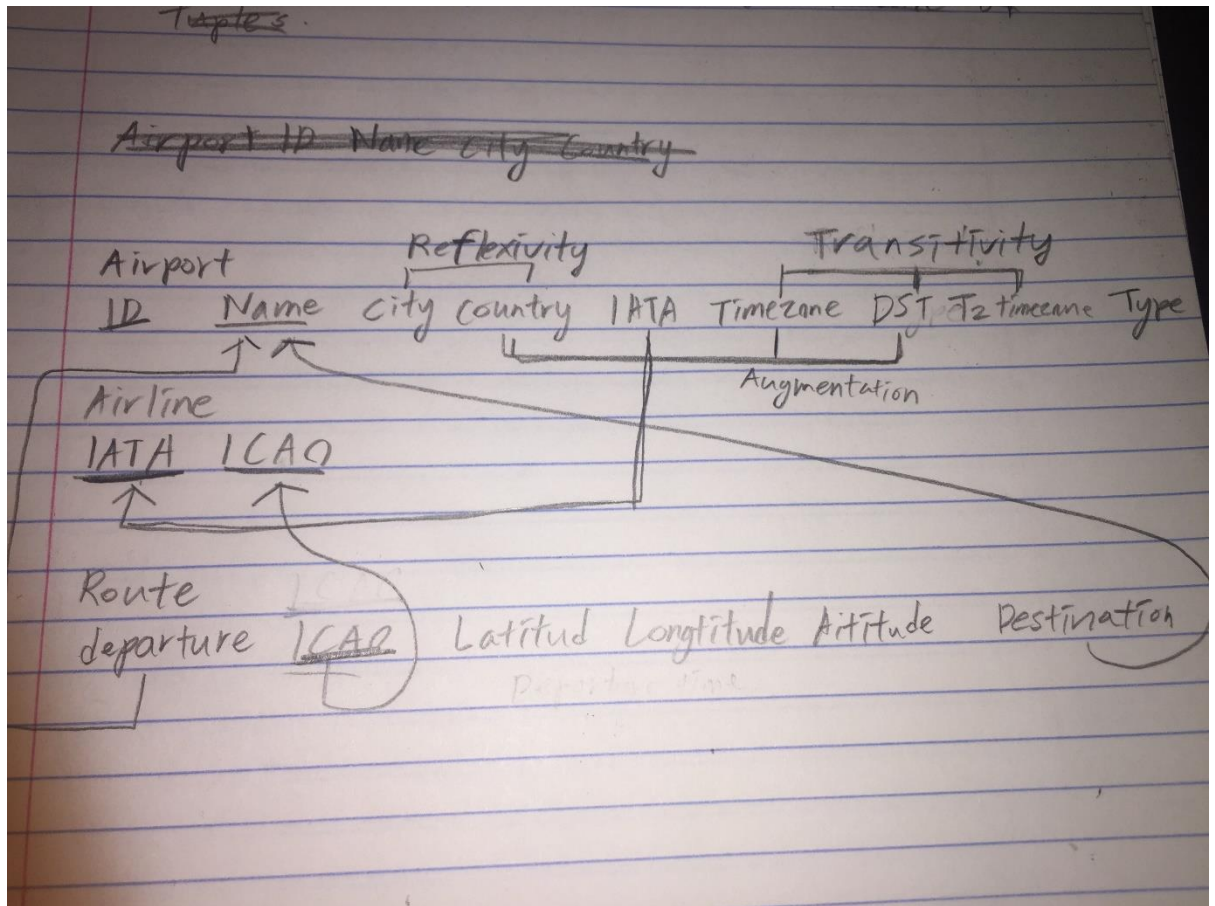 Tuples.
Airport ID Name City Country
Reflexivity Transitivity
Airport
ID Name City Country IATA Timezone DST Tz timezone Type
Augmentation
Airline
IATA ICAO
Route ICAO
departure ICAO Latitud Longtitude Aititude Destination